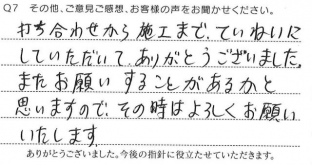 Q7 その他、ご意見ご感想、お客様の声をお聞かせください。
打ち合わせから施工まで、ていねいに
していただいて、ありがとうございました。
またお願いすることがあるかと
思いますので、その時はよろしくお願い
いたします。
ありがとうございました。今後の指針に役立たせていただきます。